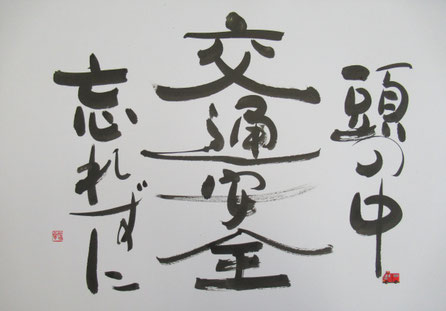 頭の中
交通安全
忘れずに